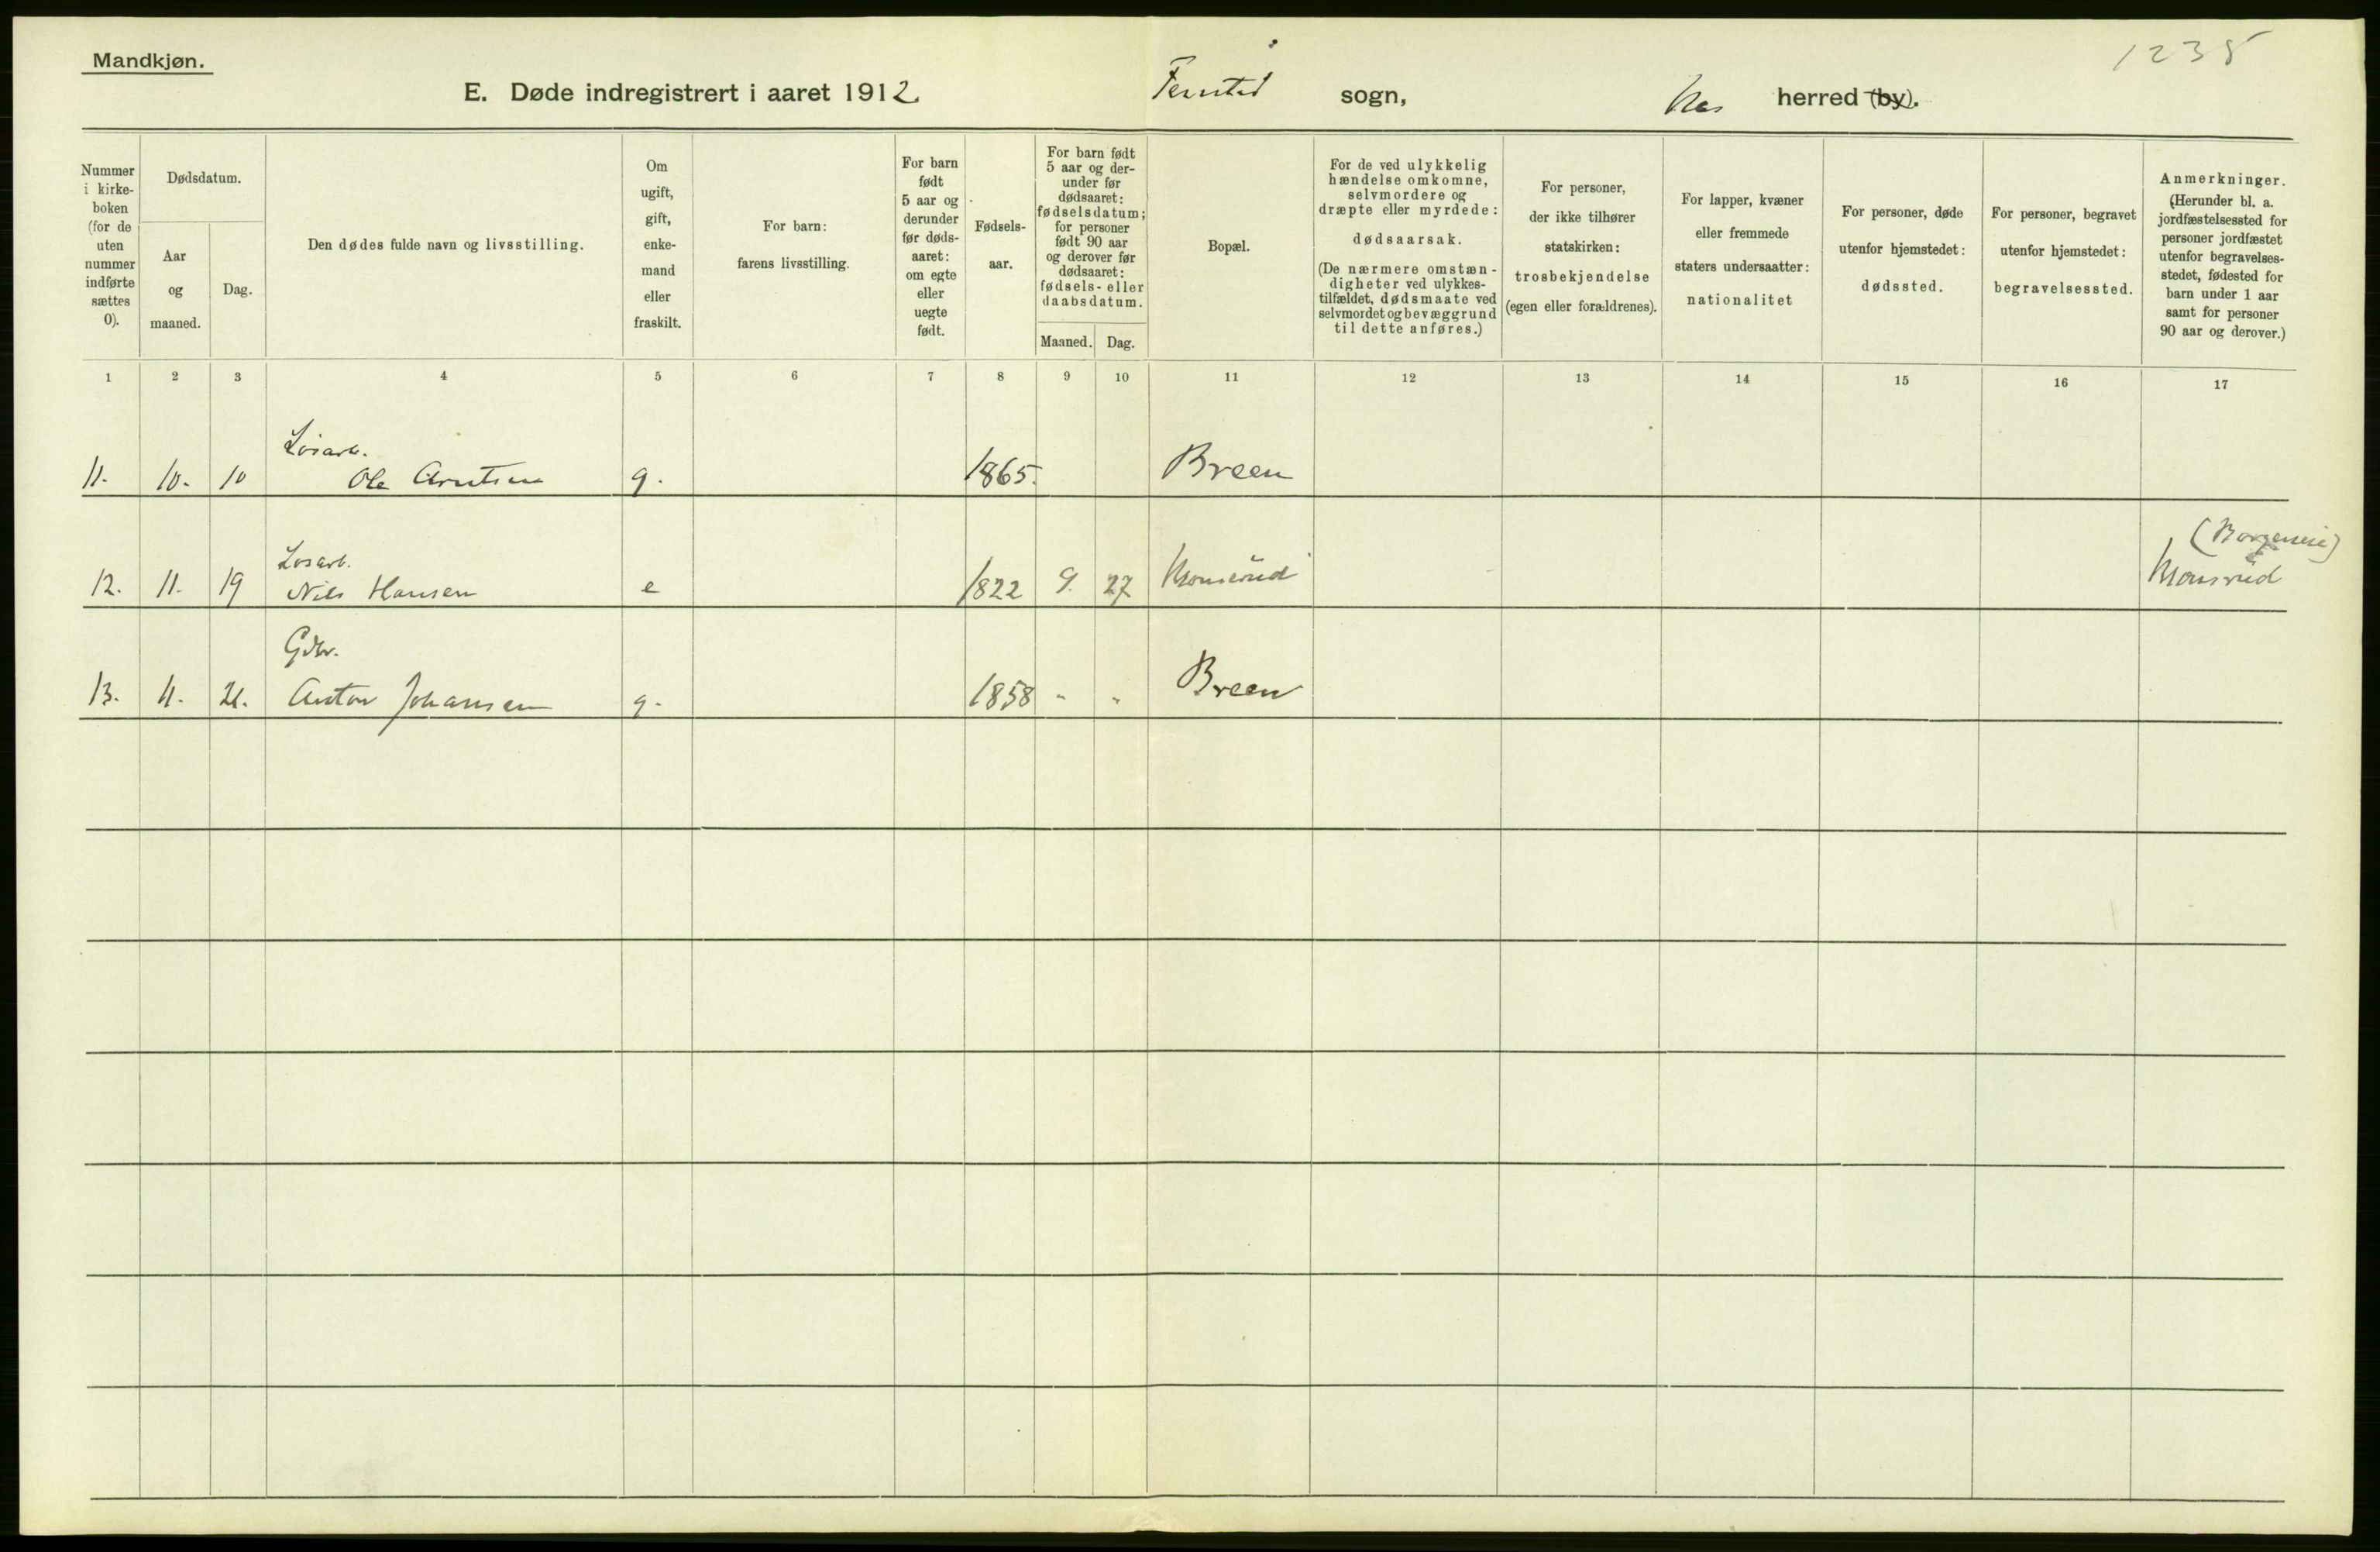 Mandkjøn.
1235
E. Døde indregistrert i aaret 1912. Fenstad sogn, Nes herred (by).
Nummer i kirkeboken (for de uten nummer indførte sættes 0).
Dødsdatum.
Aar og maaned.
Dag.
Den dødes fulde navn og livsstilling.
Om ugift, gift, enkemand eller fraskilt.
For barn: farens livsstilling.
For barn født 5 aar og derunder før dødsaaret: om egte eller uegte født.
Fødselsaar.
For barn født 5 aar og derunder før dødsaaret: fødselsdatum; for personer født 90 aar og derover før dødsaaret: fødsels- eller daabsdatum.
Maaned. Dag.
Bopæl.
For de ved ulykkelig hændelse omkomne, selvmordere og dræpte eller myrdede: dødsaarsak. (De nærmere omstændigheter ved ulykkestilfældet, dødsmaate ved selvmordet og bevæggrund til dette anføres.)
For personer, der ikke tilhører statskirken: trosbekjendelse (egen eller forældrenes).
For lapper, kvæner eller fremmede staters undersaatter: nationalitet
For personer, døde utenfor hjemstedet: dødssted.
For personer, begravet utenfor hjemstedet: begravelsessted.
Anmerkninger. (Herunder bl. a. jordfæstelsessted for personer jordfæstet utenfor begravelsesstedet, fødested for barn under 1 aar samt for personer 90 aar og derover.)
1 2 3 4 5 6 7 8 9 10 11 12 13 14 15 16 17
Løsarb.
11. 10. 10 Ole Arntsen g. 1865. Breen
Løsarb. (Borgeneie)
12. 11. 19 Nils Hansen e 1822 9. 27 Monsrud Monsrud
Gdbr.
13. 11. 21. Anton Johansen g. 1858 " " Breen